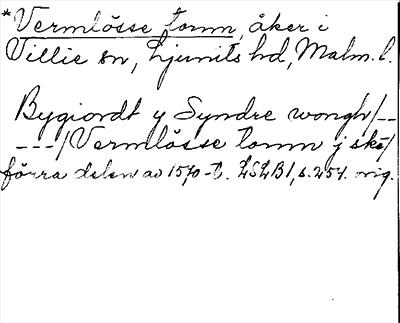 *Vermlösse tomn, åker i
Villie sn, Ljunits hd, Malm. l.
Bygiordt y Syndre wongh/--
---/Vermlösse tomn j skō/
förra delen av 1570-t. LSLB1, s. 254. orig.